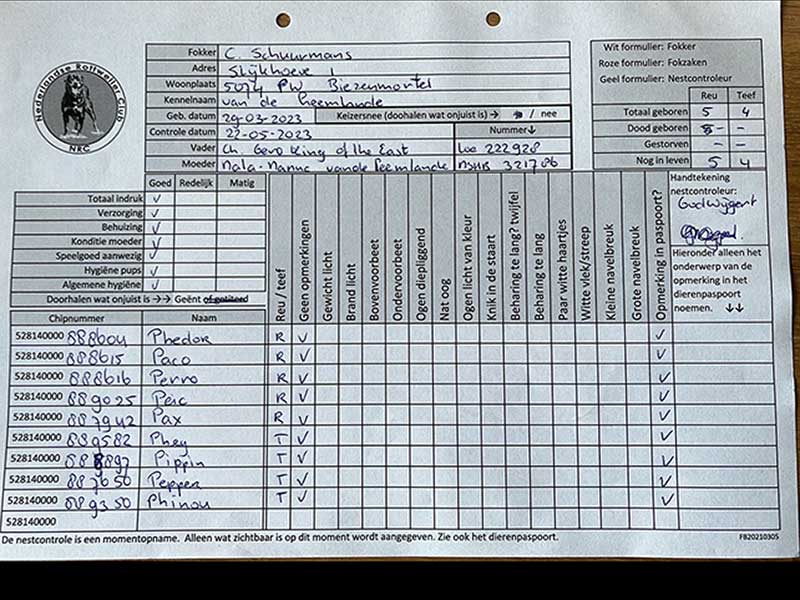 Nederlandse Rottweiler Club
NRC
Fokker C. Schuurmans
Adres Slijkhoeve 1
Woonplaats 5074 PW Biezenmortel
Kennelnaam van de Peemlande
Geb. datum 29-03-2023 Keizersnee (doorhalen wat onjuist is) → / nee
Controle datum 22-05-2023 Nummer↓
Vader Ch Gero King of the East Loe 222928
Moeder Nala-Nanne vande Peemlande NSHB 321706
Wit formulier: Fokker
Roze formulier: Fokzaken
Geel formulier: Nestcontroleur
Reu Teef
Totaal geboren 5 4
Dood geboren - -
Gestorven - -
Nog in leven 5 4
Goed Redelijk Matig
Totaal indruk ✓
Verzorging ✓
Behuizing ✓
Konditie moeder ✓
Speelgoed aanwezig ✓
Hygiëne pups ✓
Algemene hygiëne ✓
Doorhalen wat onjuist is →→ Geënt of getiteerd
Reu / teef
Geen opmerkingen
Gewicht licht
Brand licht
Bovenvoorbeet
Ondervoorbeet
Ogen diepliggend
Nat oog
Ogen licht van kleur
Knik in de staart
Beharing te lang? twijfel
Beharing te lang
Paar witte haartjes
Witte vlek/streep
Kleine navelbreuk
Grote navelbreuk
Opmerking in paspoort?
Handtekening
nestcontroleur:
Hieronder alleen het
onderwerp van de
opmerking in het
dierenpaspoort
noemen. ↓↓
Chipnummer Naam
528140000 888604 Phedor R ✓ ✓
528140000 888615 Paco R ✓ ✓
528140000 888616 Perro R ✓ ✓
528140000 889025 Peic R ✓ ✓
528140000 887942 Pax R ✓ ✓
528140000 889582 Phey T ✓ ✓
528140000 Pippin T ✓ ✓
528140000 887650 Pepper T ✓ ✓
528140000 889350 Phinou T ✓ ✓
528140000
De nestcontrole is een momentopname. Alleen wat zichtbaar is op dit moment wordt aangegeven. Zie ook het dierenpaspoort. FB20210305